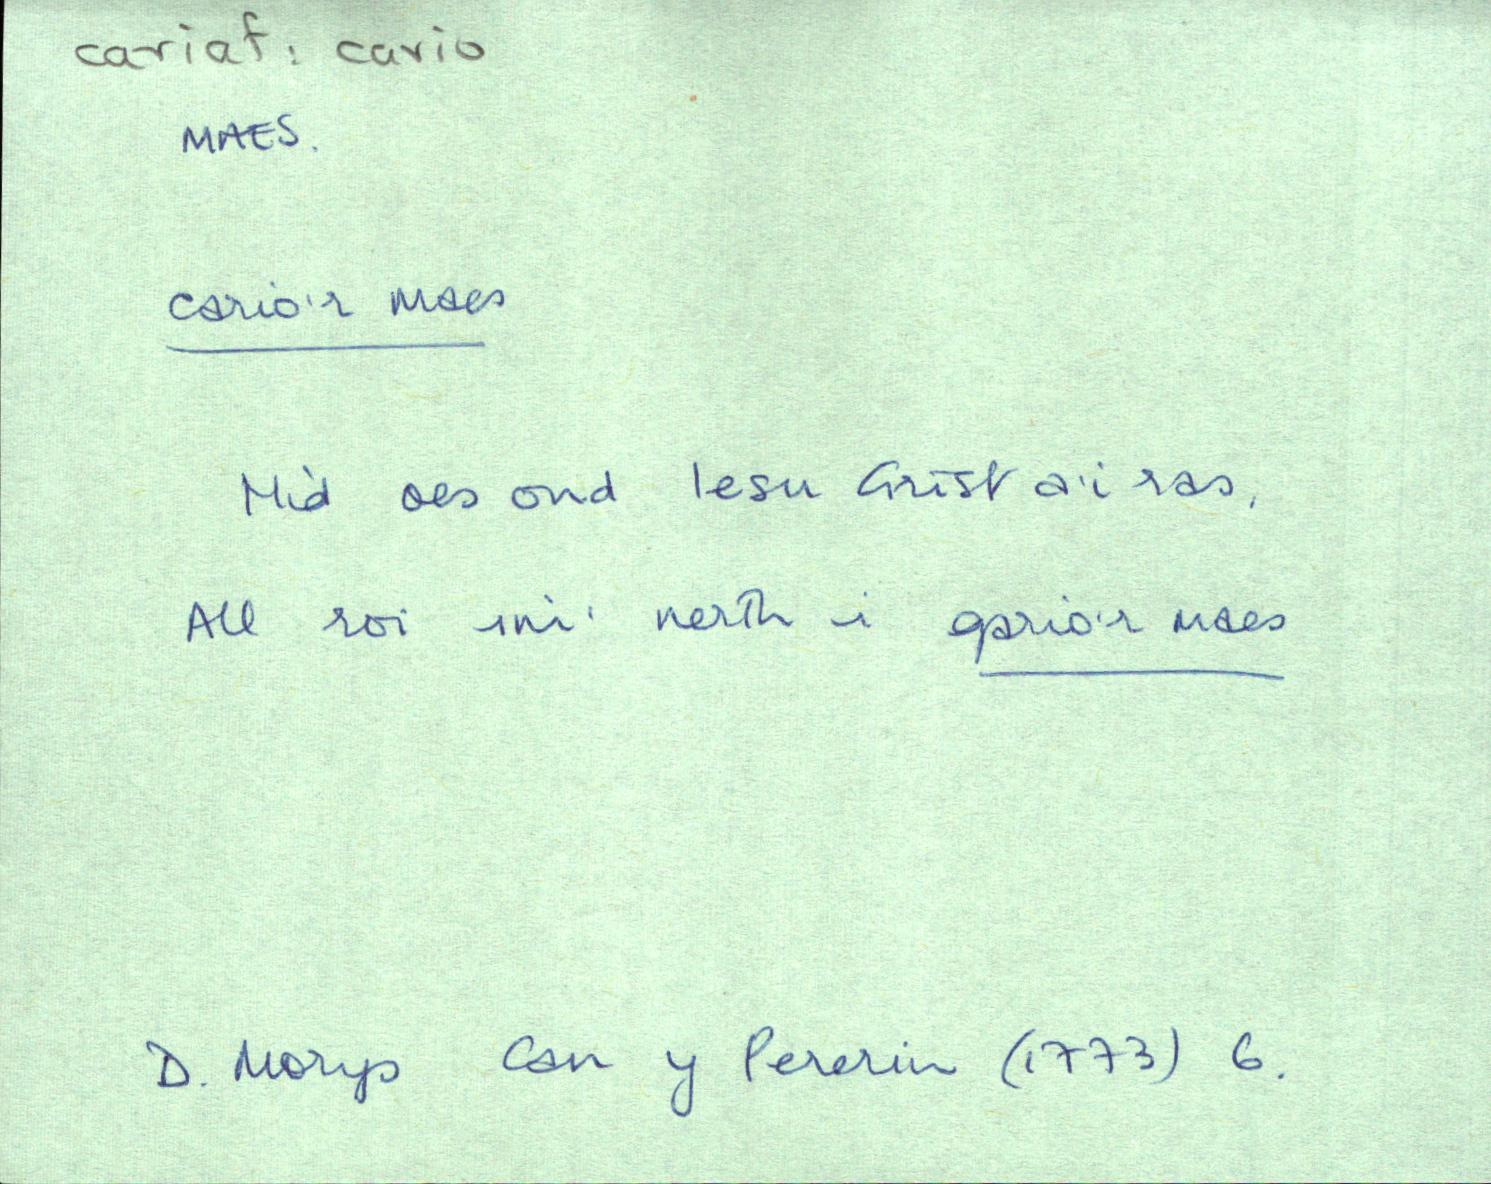 cariaf: cario
MAES.
cario'r maes
Nid oes ond Iesu Grist a'i ras,
All roi imi' nerth i gario'r maes
D. Morys Can y Pererin (1773) 6.